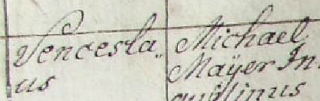 Vencesla„
us
Michael
Mayer In„
quilinus